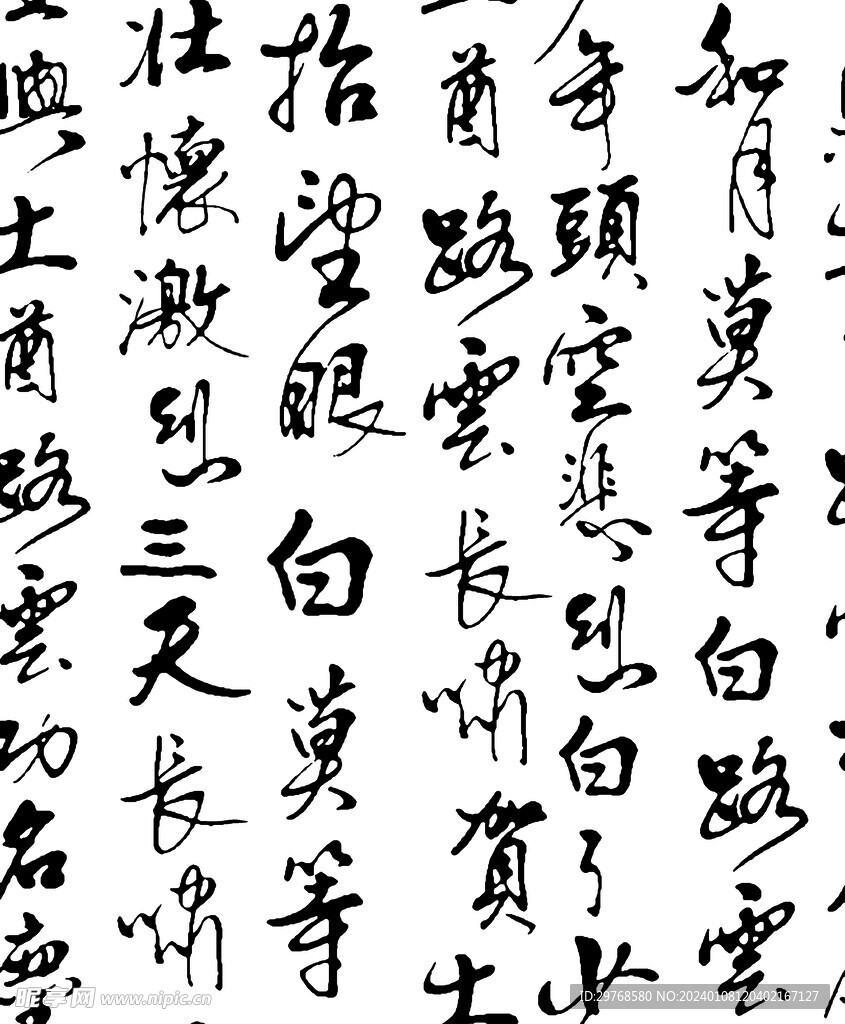 和月莫等白路雲
年頭空悲烈白了少
酋路雲長嘯賀土
抬望眼白莫等
壯懷激烈三天長嘯
土酋路雲功名塵
昵享网 www.nipic.cn
ID:29768580 NO:20240108120402167127